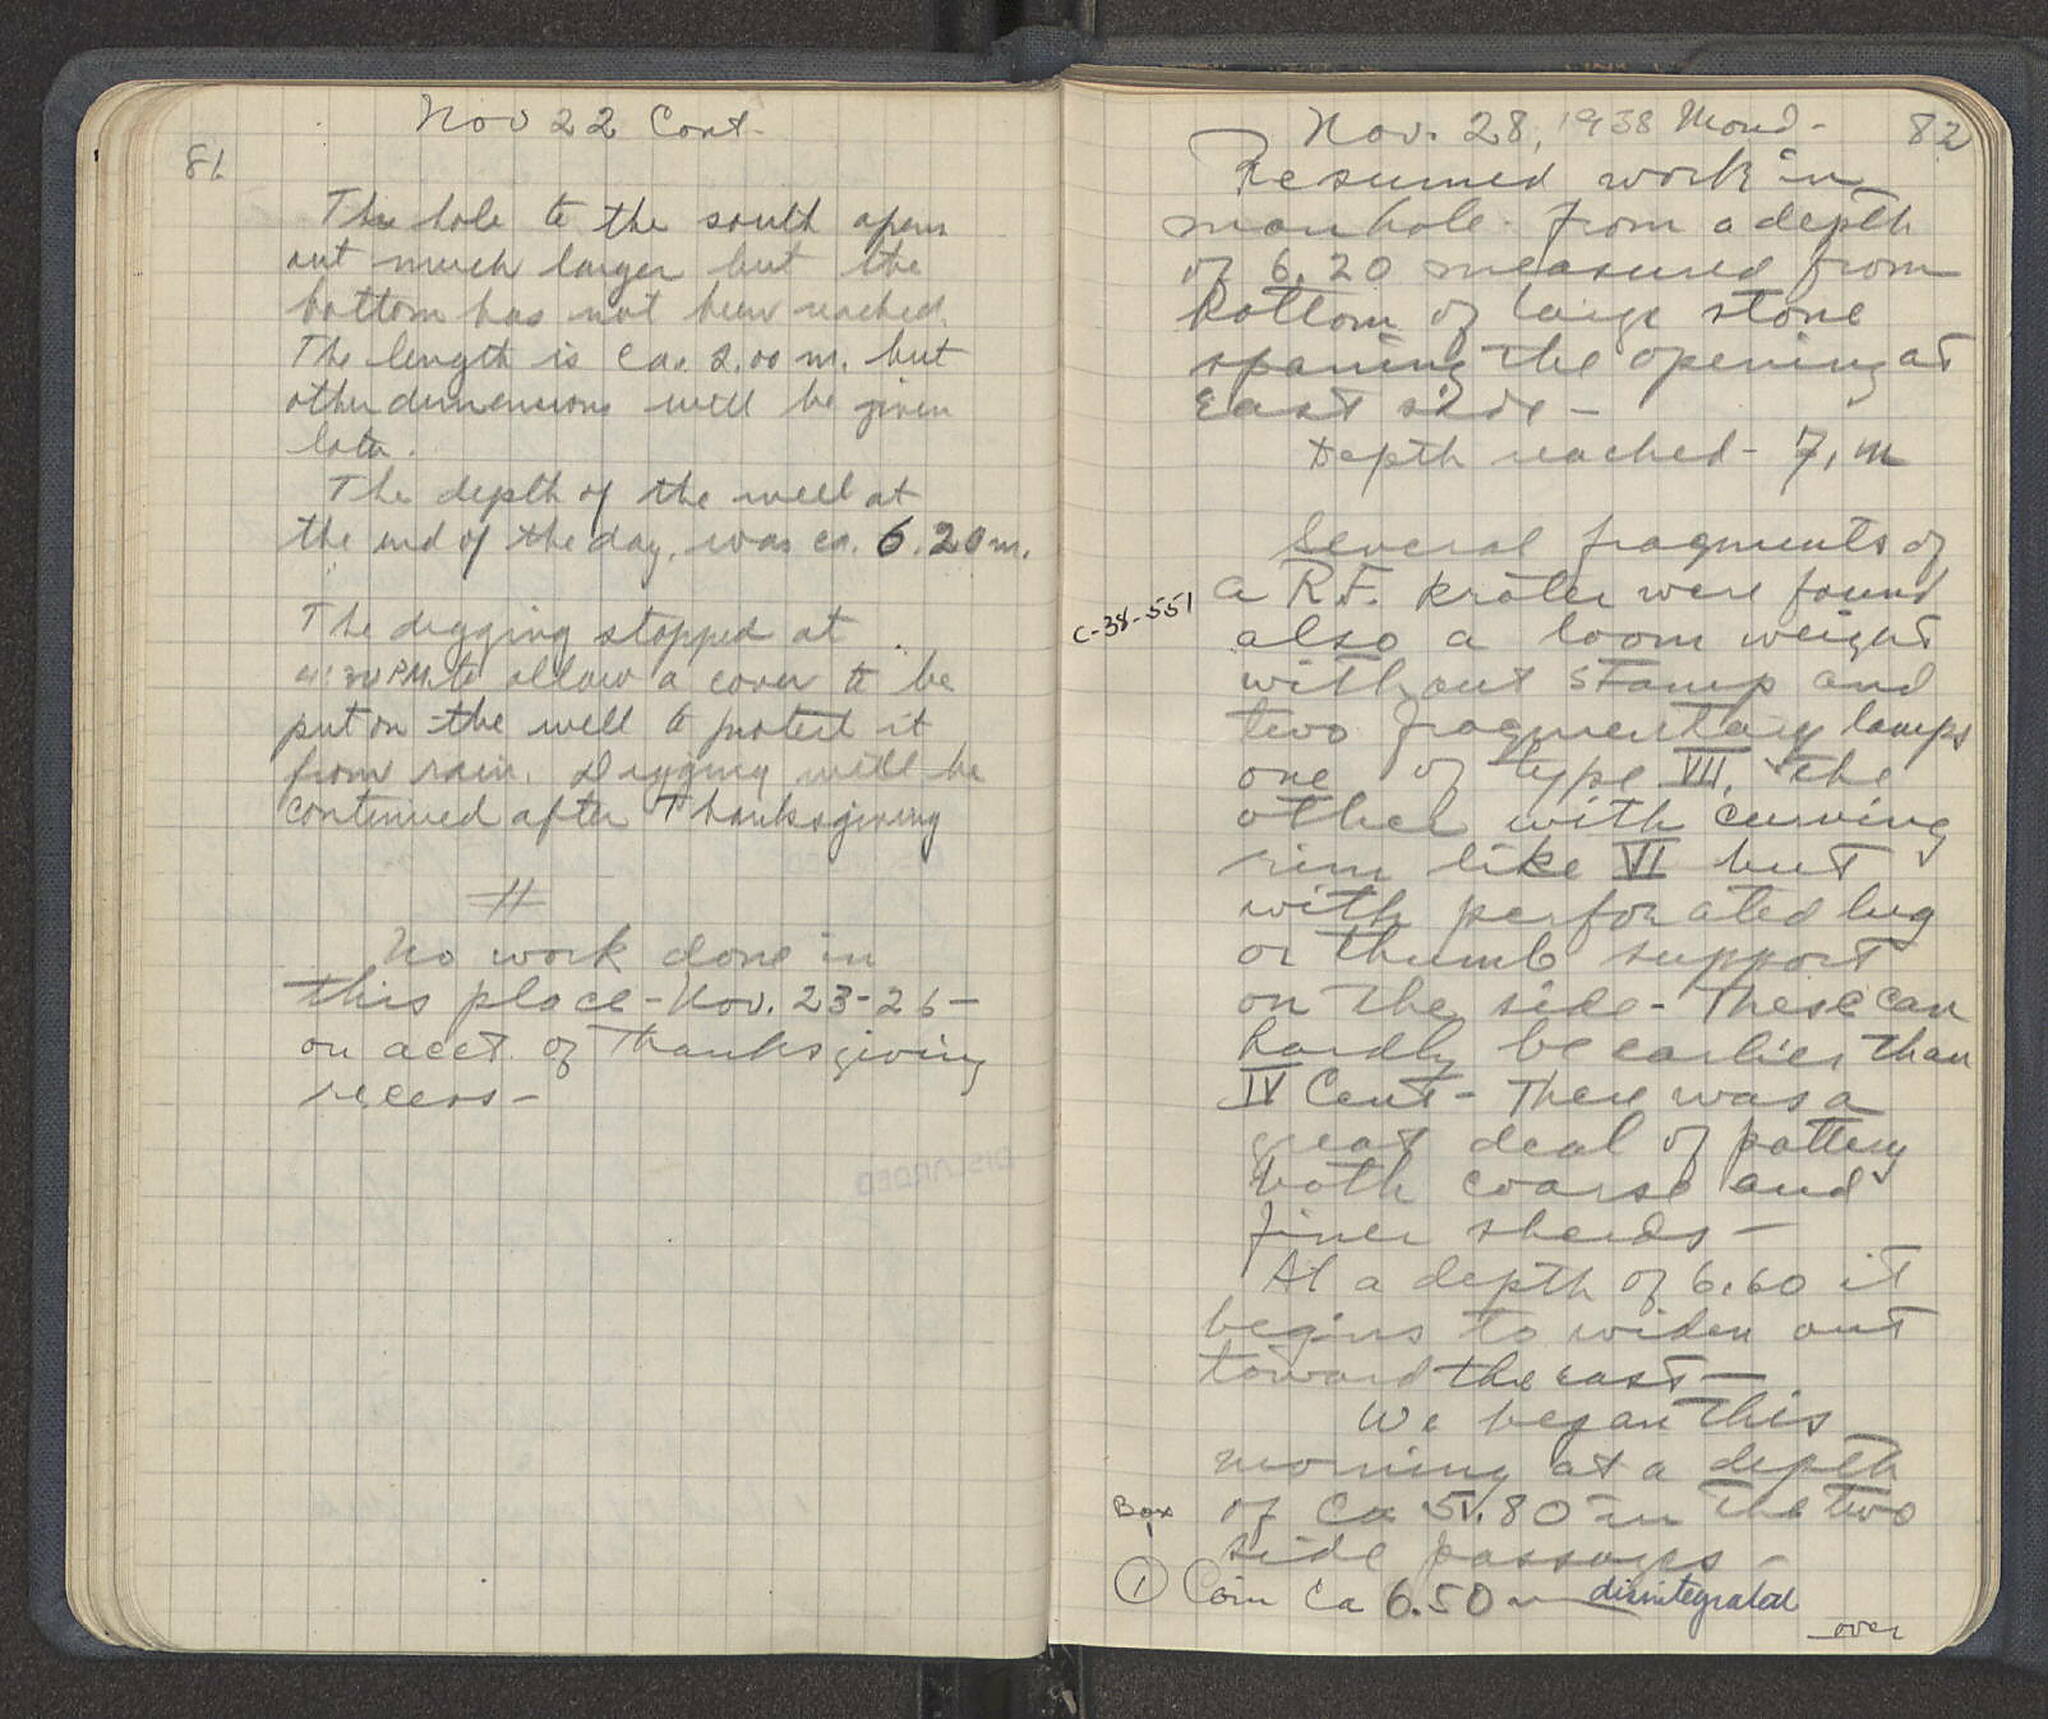 Nov 22 Cont-
81.
The hole to the south opens
out much larger but the
bottom has not been reached.
The length is ca. 2.00 m. but
other dimensions will be given
later.
The depth of the well at
the end of the day, was ca. 6.20 m.
The digging stopped at
4:30 PM. to allow a cover to be
put on the well to protect it
from rain. Digging will be
continued after Thanksgiving
No work done in
this place - Nov. 23-26 -
on acct. of Thanksgiving
recess -
Nov. 28, 1938 Mond-
82
Resumed work in
manhole from a depth
of 6.20 measured from
bottom of large stone
spaning the opening at
East side -
Depth reached - 7, m
Several fragments of
a R.F. Krater were found
C-38-551
also a loom weight
without stamp and
two fragmentary lamps
one of type VII, the
other with curving
rim like VI but
with perforated lug
or thumb support
on the side - These can
hardly be earlier than
IV Cent - There was a
great deal of pottery
both coarse and
finer sherds -
At a depth of 6.60 it
begins to widen out
toward the east -
We began this
morning at a depth
of Ca 5.80 in the two
side passages -
Box
1
① Coin Ca 6.50 - disintegrated
over